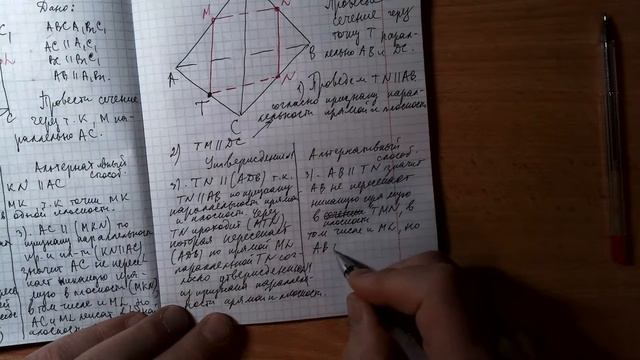 Дано:
ABCA₁B₁C₁
AC || A₁C₁
BC || B₁C₁
AB || A₁B₁
Провести сечение
через т. K, M па-
раллельно AC.
Альтернативный
способ.
KN || AC
MK т.к. точки MK
одной плоскости.
3). AC || (MKN) по
признаку параллельнос
пр-и пл-ти (KN||AC)
значит AC не пересе
кает
плоскости (MKN)
в том числе и ML, но
AC и ML лежат в
плоскос
M
N
A
B
T
N
C
сечение через
точку T парал-
лельно AB и DC.
1) Проведем TN || AB
согласно признаку парал-
лельности прямой и плоскости
2) TM || DC
Утверждения
3). TN || (ADB) т.к.
TN || AB по признаку
параллельности прямой
и плоскости. Через
TN проходит (MTN),
которая пересекает
(ADB) по прямой ML
параллельной TN сог-
ласно утверждению
из признака паралле
ности прямой и плоскос.
Альтернативный
способ.
3). AB || TN значит
AB не пересекает
никакую прямую
в плоскости TMN, в
том числе и ML, но
AB